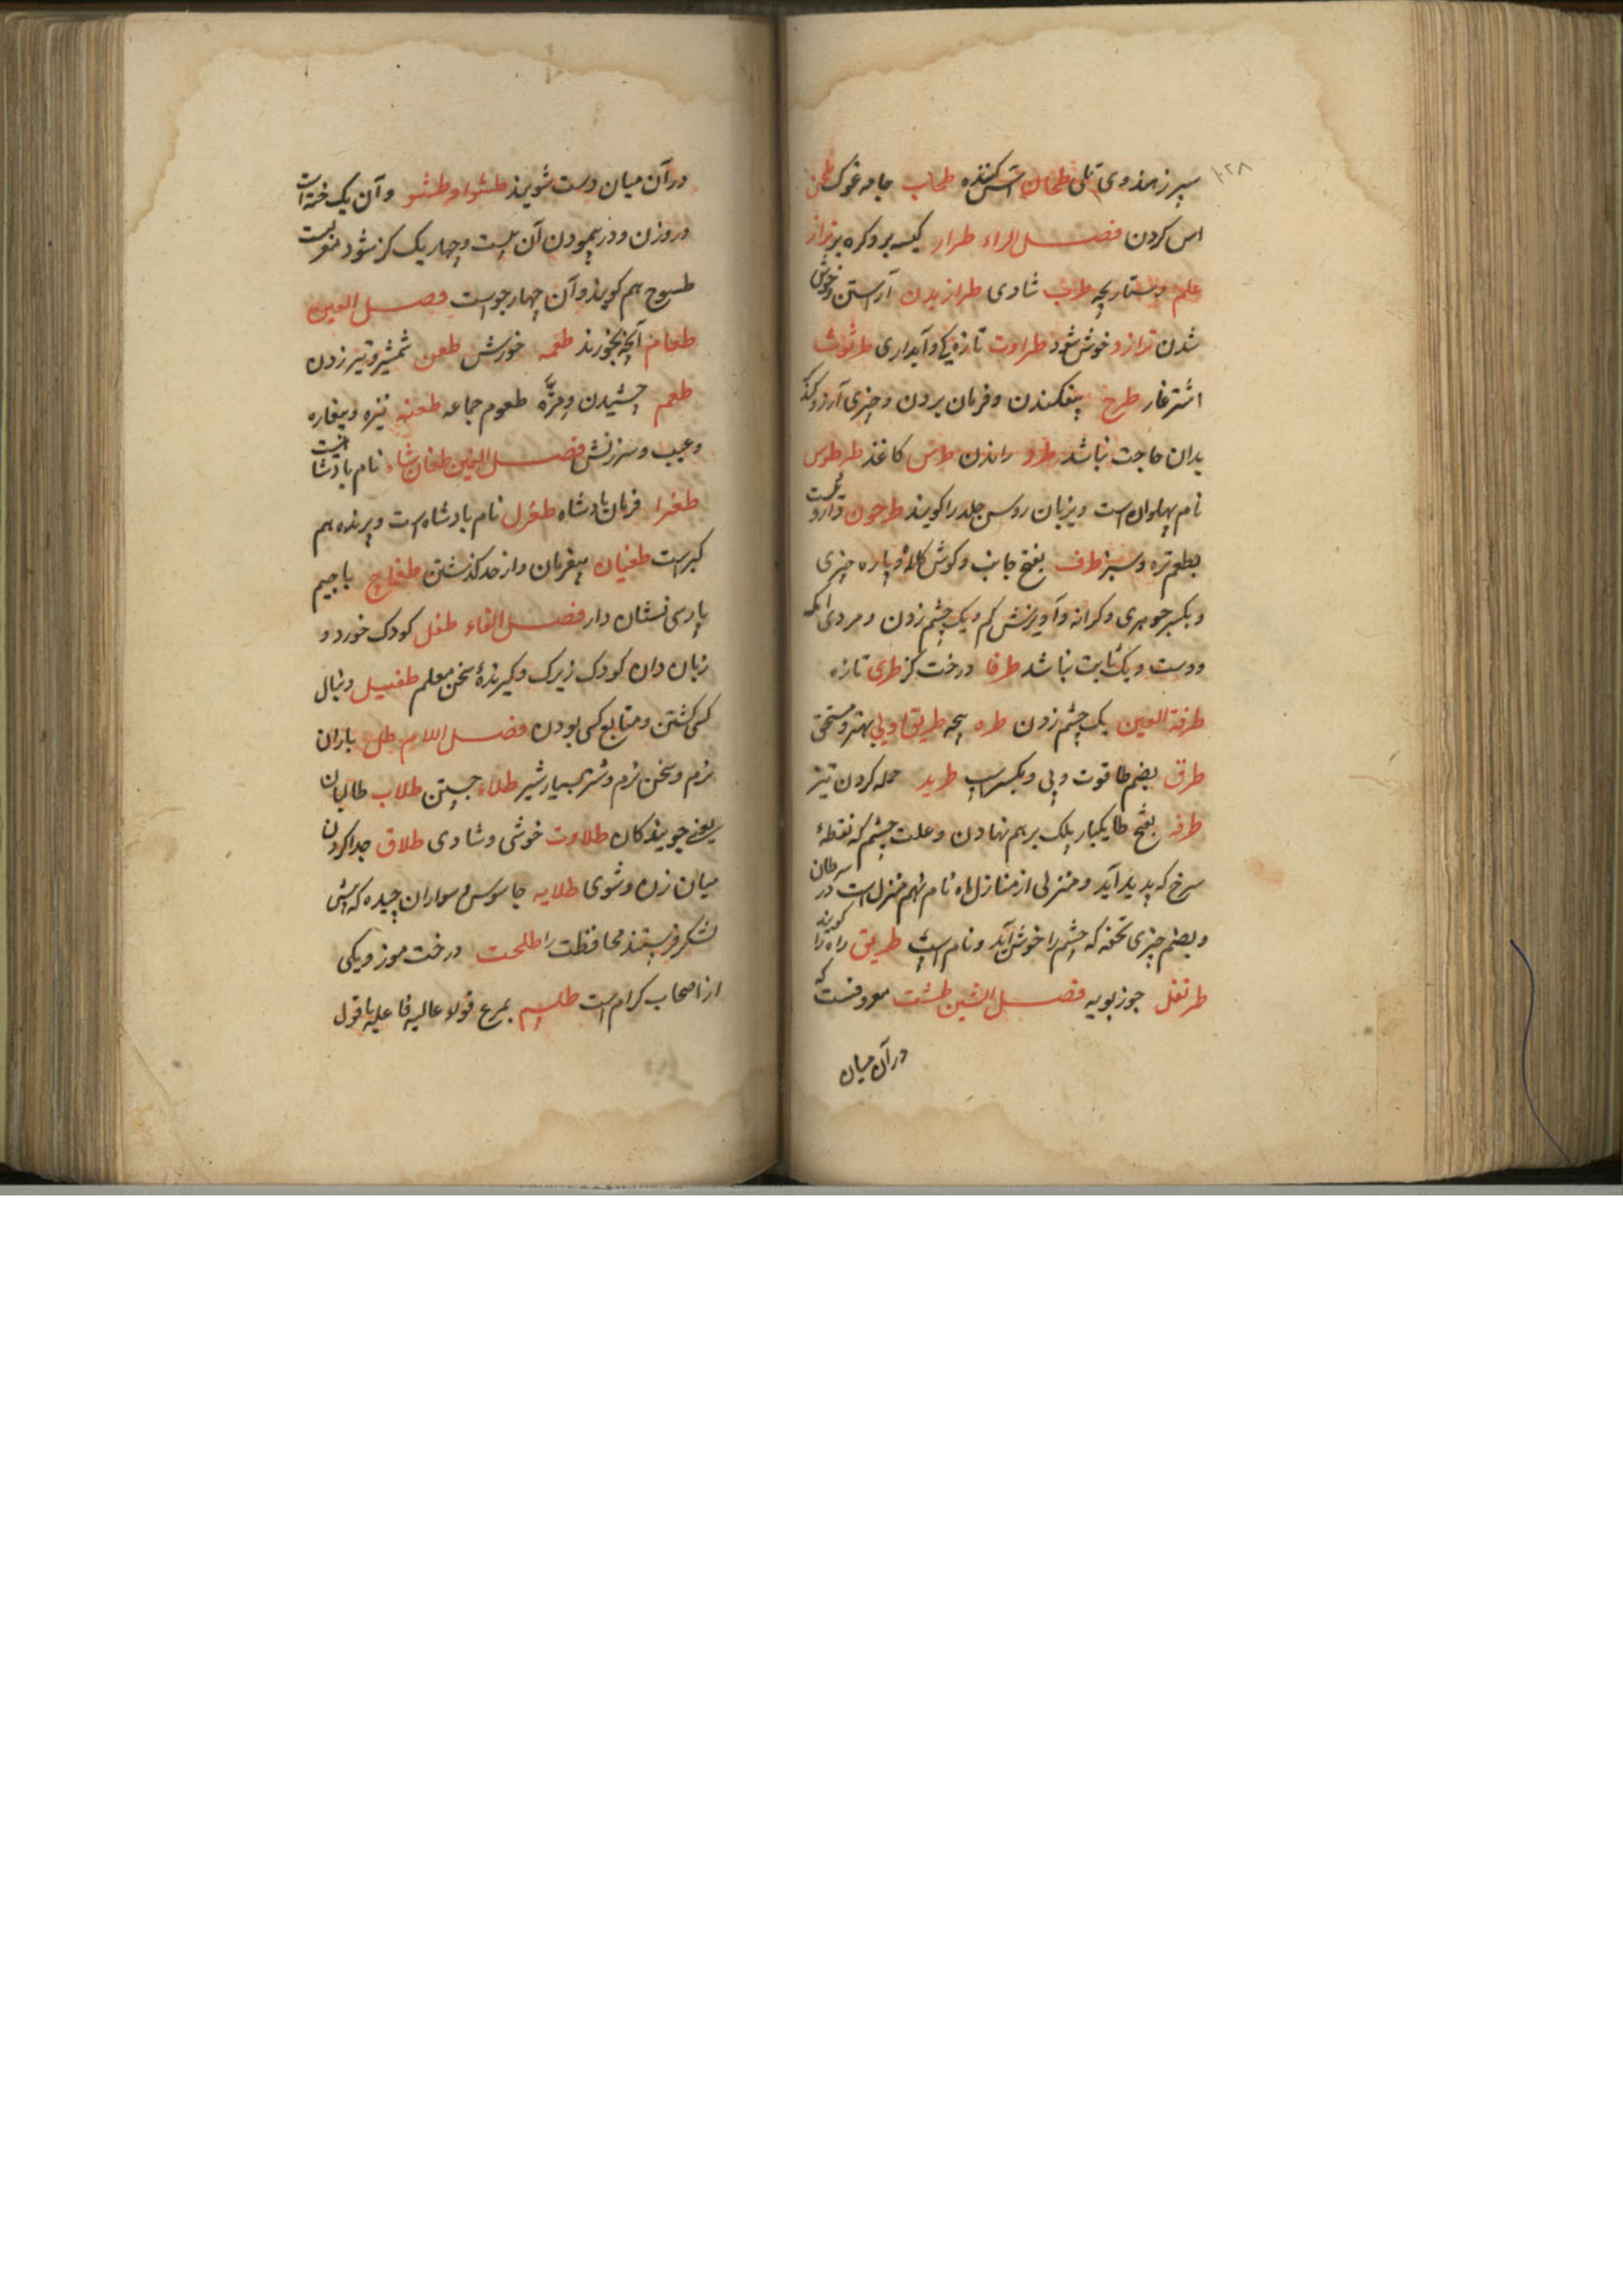 ۱۰۲۸
سپرز هندوی تلی طحان آس کننده طحاب جامه غوک طحن
اس کردن فصل الراء طرار کیسه بر و کره بر طراز
علم دستارچه طرب شادی طرازیدن آراستن و خوش
شدن طراز د خوش شود طراوت تازه‌گی و آبداری طرثوث
اشترغار طرح بیفکندن و فرمان بردن و چیزی آرزو کند
بدان حاجت نباشد طرد راندن طرس کاغذ طرطوس
نام پهلوان است و بزبان روس جلد را کویند طرخون داروئیست
بطعم تره و سبز طرف بفتح جانب و کوش کلاه و پاره چیزی
و بکسر جوهری و کرانه و آویزش کم و یک چشم زدن و مردی انکه
دوست و یک ثابت نباشد طرفا درخت کز طری تازه
طرفة العین یک چشم زدن طره طریق اولی بهتر و مستحق
طرق بضم طا قوت و پی و بکسر طرید حمله کردن تیز
طرفه بفتح طا یکبار پلک بر هم نهادن و علت چشم که نقطهٔ
سرخ که پدید آید و منزلی از منازل ماه نام نهم منزل است در سرطان
و بضم چیزی تحفه که چشم را خوش آید و نام طریق راه را کویند
طرنفل جوز بویه فصل الشین طشت معروفست که
در آن میان
در آن میان دست شویند طشوا و طشو و آن یک است
در وزن و در پیمودن آن بیست و چهار یک کز شود
طسوج هم کویند و آن چهار جوست فصل العین
طعام آنچه بخورند طعمه خورش طعن شمشیر و تیر زدن
طعم چشیدن و مزّه طعوم جماعه طعنه نیزه و بیغاره
و عیب و سرزنش فصل الغین طغان شاه نام پادشاه است
طغرا فرمان پادشاه طغرل نام پادشاه است و پرنده هم
کبرست طغیان بیفرمان و از حد کذشتن طغاج با جیم
پارسی نشان دار فصل الفاء طفل کودک خورد و
زبان دان کودک زیرک و کیرندهٔ سخن معلم طفیل دنبال
کسی کشتن و متابع کسی بودن فصل اللام طل باران
نرم و سخن نرم و شتر بسیار شیر طلاء جستن طلاب طالبان
یعنی جویندکان طلاوت خوشی و شادی طلاق جدا کردن
میان زن و شوی طلایه جاسوس و سواران چیده که پیش
لشکر فرستند محافظت را طلحت درخت موز و یکی
از اصحاب کرام است